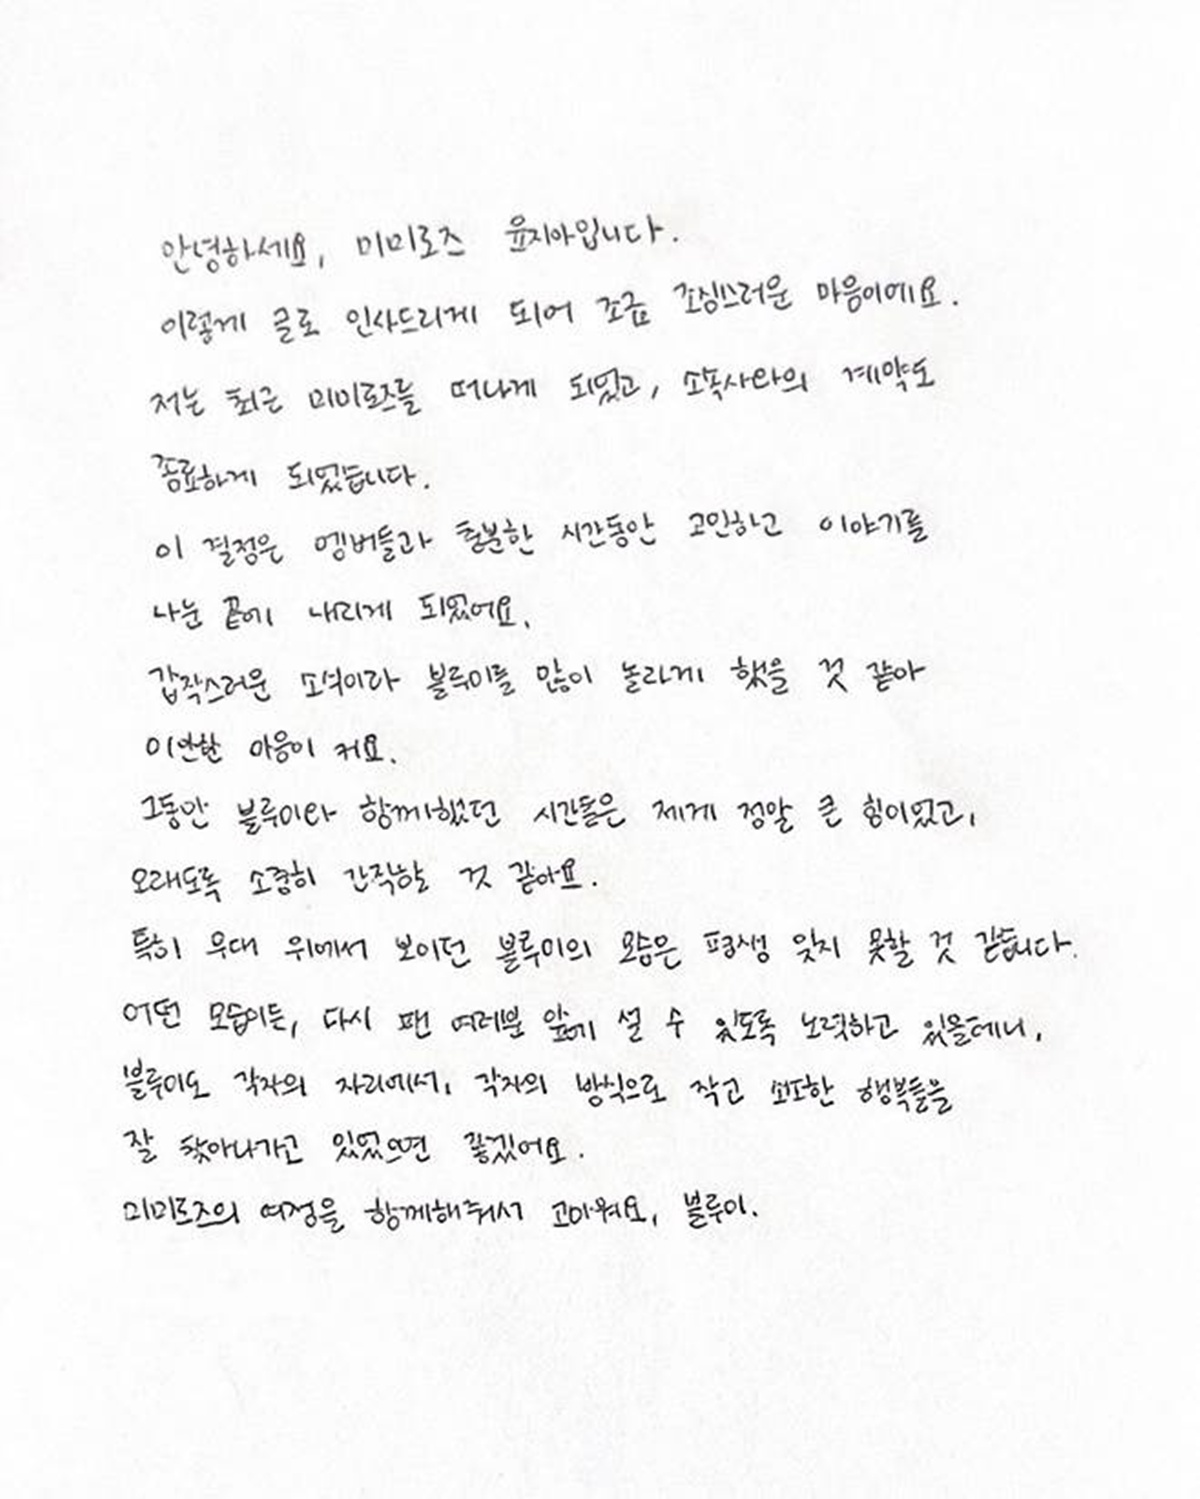 안녕하세요, 미미로즈 윤지아입니다.
이렇게 글로 인사드리게 되어 조금 조심스러운 마음이에요.
저는 최근 미미로즈를 떠나게 되었고, 소속사와의 계약도
종료하게 되었습니다.
이 결정은 멤버들과 충분한 시간동안 고민하고 이야기를
나눈 끝에 내리게 되었어요.
갑작스러운 소식이라 블루이를 많이 놀라게 했을 것 같아
미안한 마음이 커요.
그동안 블루이와 함께했던 시간들은 제게 정말 큰 힘이었고,
오래도록 소중히 간직할 것 같아요.
특히 무대 위에서 보이던 블루이의 모습은 평생 잊지 못할 것 같습니다.
어떤 모습이든, 다시 팬 여러분 앞에 설 수 있도록 노력하고 있을테니,
블루이도 각자의 자리에서, 각자의 방식으로 작고 소또한 행복들을
잘 찾아나가고 있었으면 좋겠어요.
미미로즈의 여정을 함께해줘서 고마워요, 블루이.